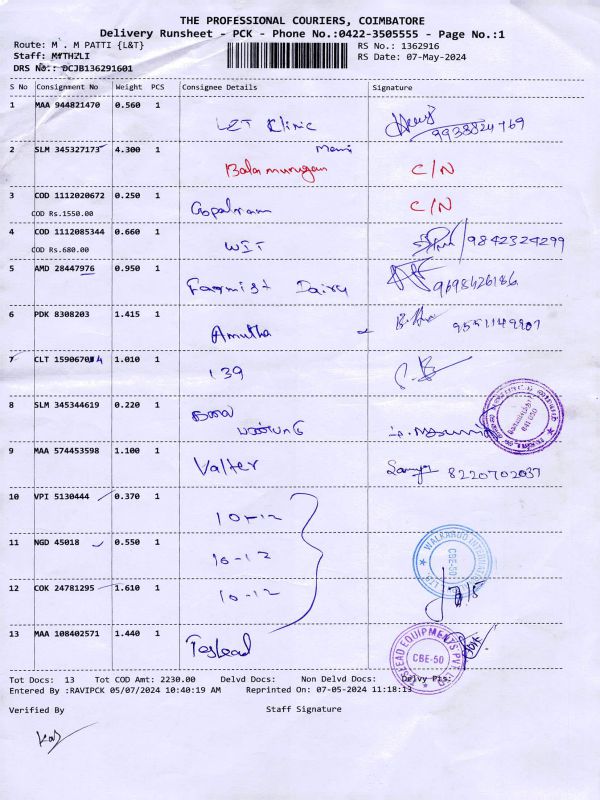 THE PROFESSIONAL COURIERS, COIMBATORE
Delivery Runsheet - PCK - Phone No.:0422-3505555 - Page No.:1
Route: M . M PATTI {L&T}
Staff: MYTHILI
DRS No.: DCJB136291601
RS No.: 1362916
RS Date: 07-May-2024
S No Consignment No Weight PCS Consignee Details Signature
1 MAA 944821470 0.560 1 L&T Clinic 9938824769
2 SLM 345327173 4.300 1 Balamurugan C/N
3 COD 1112020672 0.250 1 Gopalram C/N
COD Rs.1550.00
4 COD 1112085344 0.660 1 WIT 9842324299
COD Rs.680.00
5 AMD 28447976 0.950 1 Farmist Dairy 9698626186
6 PDK 8308203 1.415 1 Amutha 9551149907
7 CLT 1.010 1 139
8 SLM 345344619 0.220 1
9 MAA 574453598 1.100 1 Valter 8220702037
10 VPI 5130444 0.370 1 10-12
11 NGD 45018 0.550 1 10-12
WALKAROO INTERNATIONAL LTD. CBE-50
12 COK 24781295 1.610 1 10-12
13 MAA 108402571 1.440 1 Teslead
TESLEAD EQUIPMENTS PVT LTD CBE-50
Tot Docs: 13 Tot COD Amt: 2230.00 Delvd Docs: Non Delvd Docs: Delvy Pts:
Entered By :RAVIPCK 05/07/2024 10:40:19 AM Reprinted On: 07-05-2024 11:18:13
Verified By Staff Signature